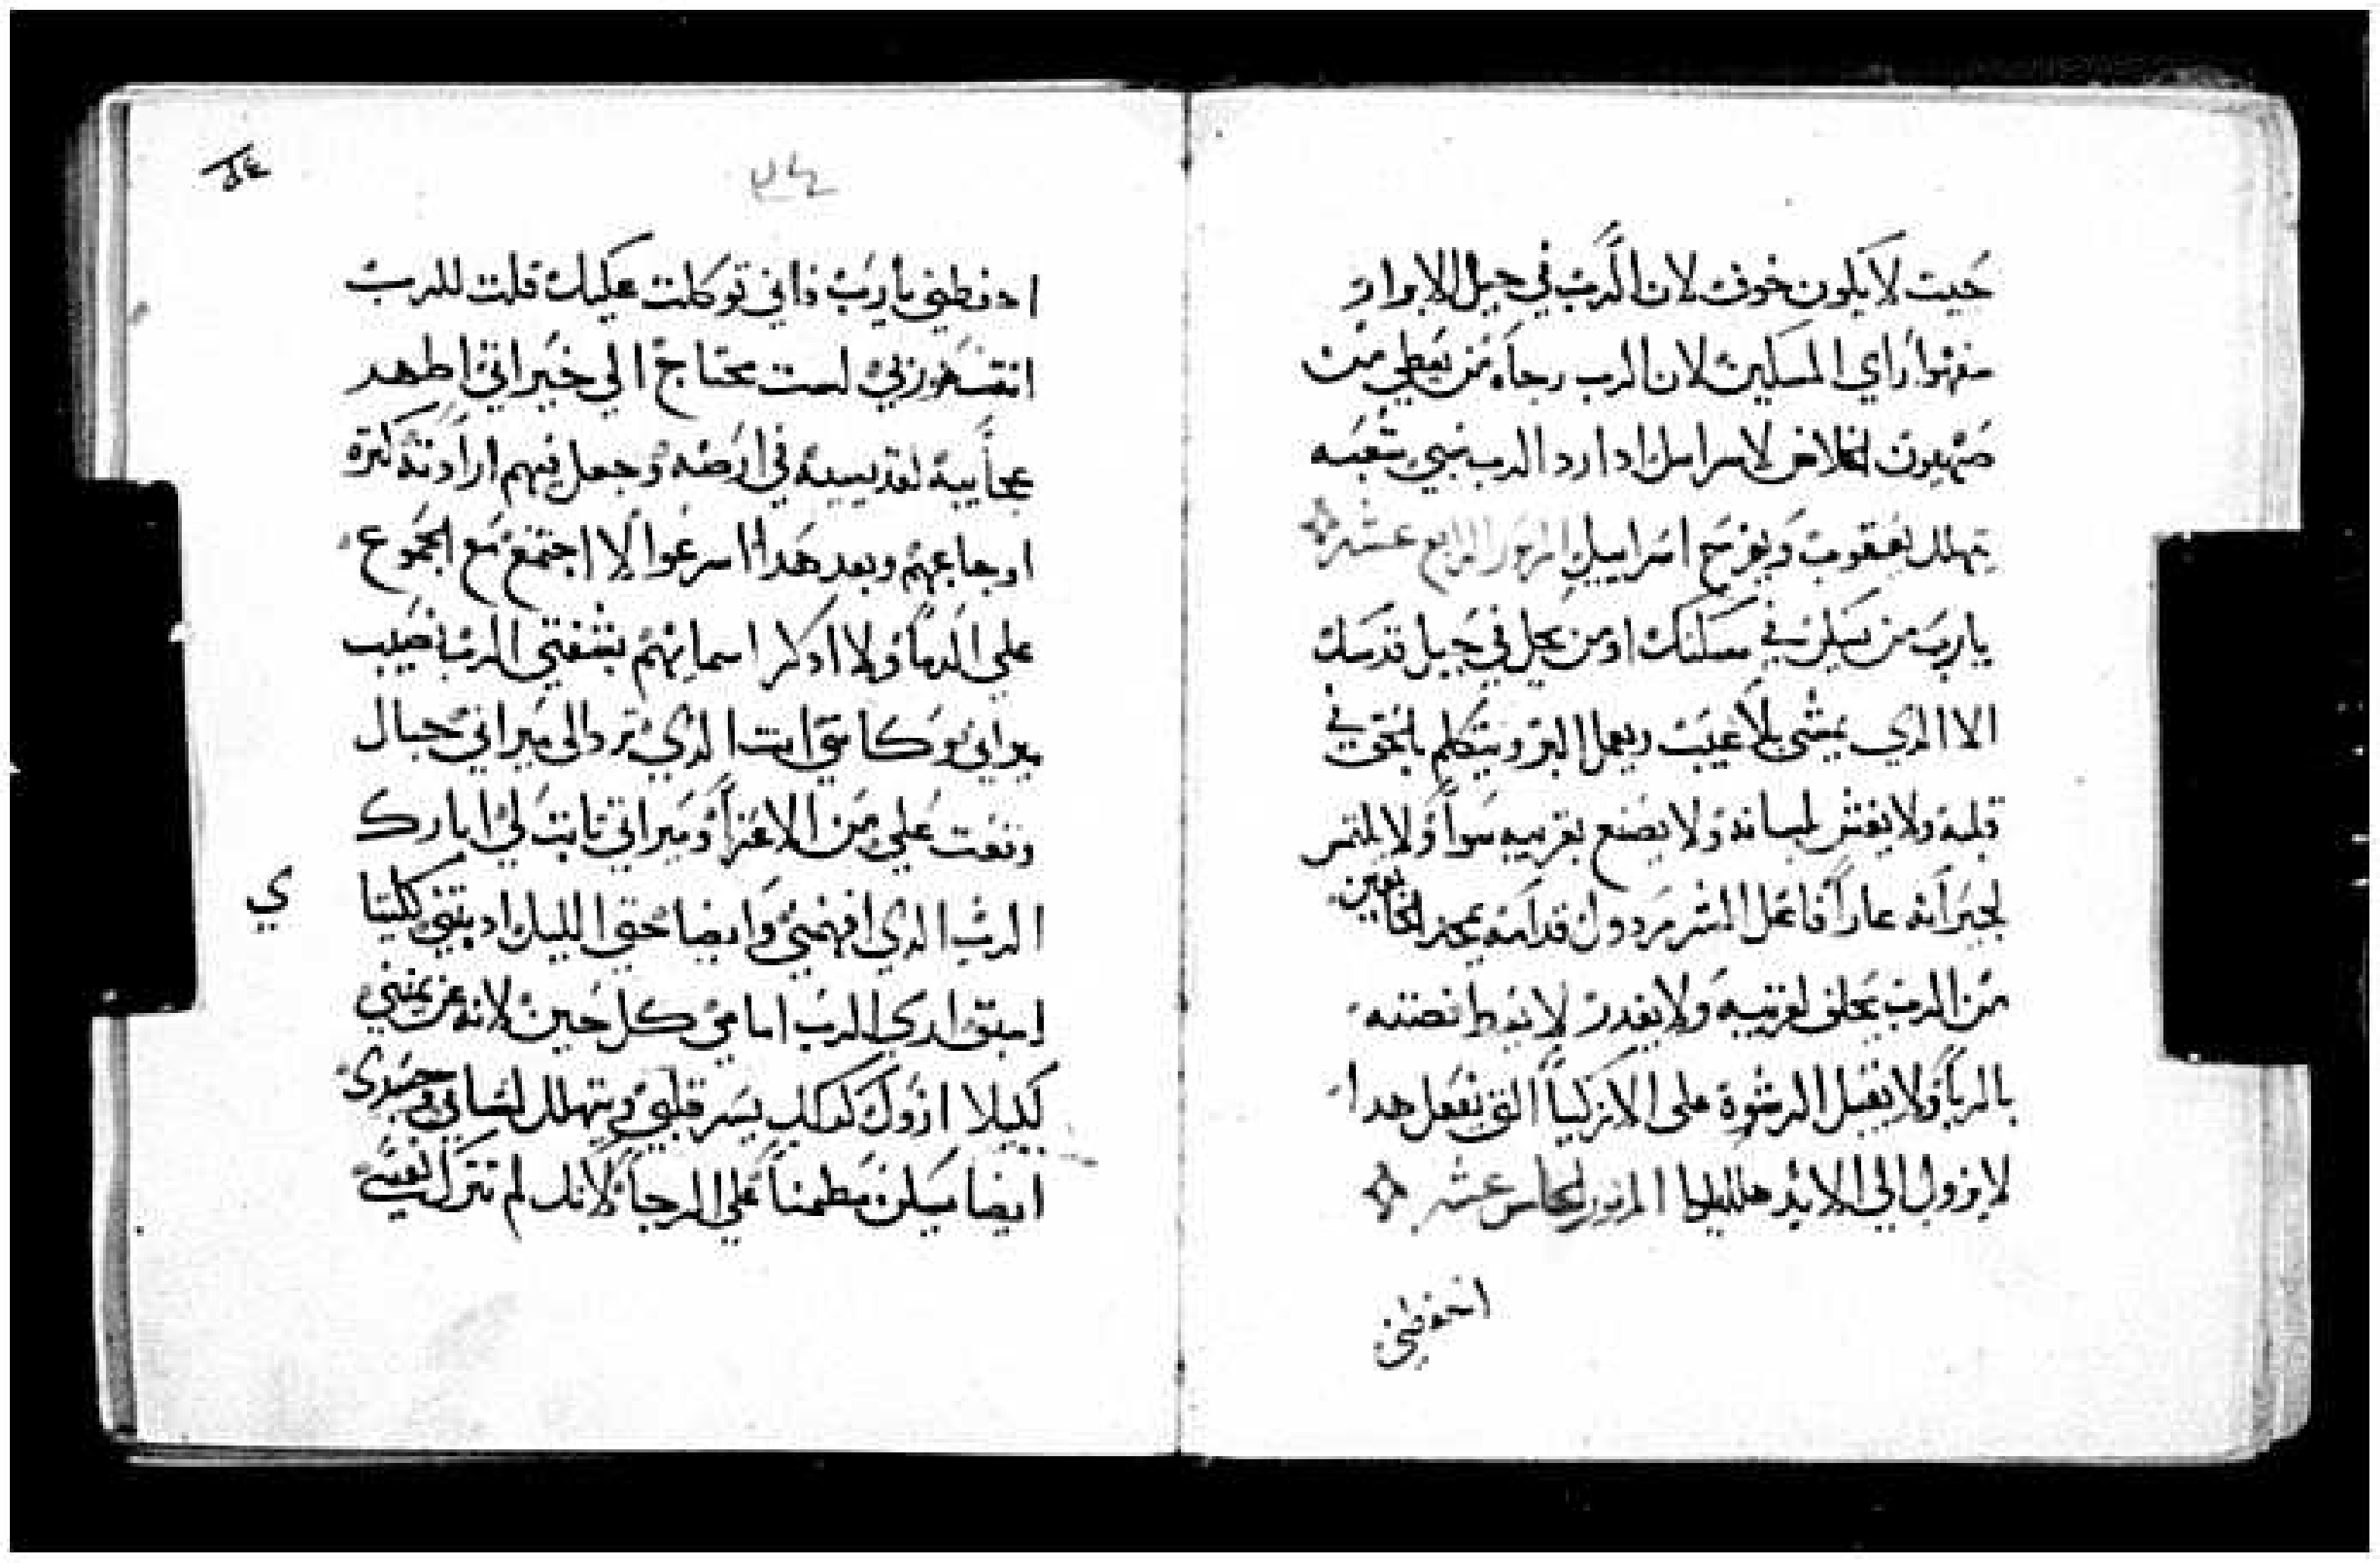 حيت لا يكون خوف لان الرب في جيل الابرار
راي المسكين لان الرب رجاه من يعطي من
صهيون الخلاص لاسراييل ادا رد الرب سبي شعبه
يتهلل يعقوب ويفرح اسراييل المزمور الرابع عشر
يارب من يسكن في مسكنك او من يحل في جبل قدسك
الا الدي يمشي بلا عيب ويعمل البر ويتكلم بالحق في
قلبه ولا يغش بلسانه ولا يصنع بقريبه سوا ولا يلتمس
لجيرانه عارا فاعل الشر مردول قدامه يمجد الخايفين
من الرب يحلف لقريبه ولا يغدر لا يعطا فضته
بالربا ولا يقبل الرشوة على الازكيا الذي يفعل هدا
لا يزول الي الابد هلليلويا المزمور الخامس عشر
احفظني
٢٤
احفظني يارب فاني توكلت عليك قلت للرب
انت هو ربي لست محتاج الي خيراتي اظهر
عجايبه لقديسيه في ارضه وجعل فيهم ارادته كترة
اوجاعهم وبعد هدا اسرعوا لا اجتمع مع الجموع
علي الدما ولا ادكر اسمايهم بشفتي الرب نصيب
ميراتي وكاسي انت الدي ترد الي ميراتي حبال
وقعت علي من الاعزا وميراتي تابت لي ابارك
الرب الدي افهمني وايضا حتي الليل ادبتني كليتاي
اسبق اري الرب امامي كل حين لانه عن يميني
كيلا ازول كدلك يسر قلبي ويتهلل لساني وجسدي
ايضا يسكن مطمنا علي الرجا لانك لم تترك نفسي